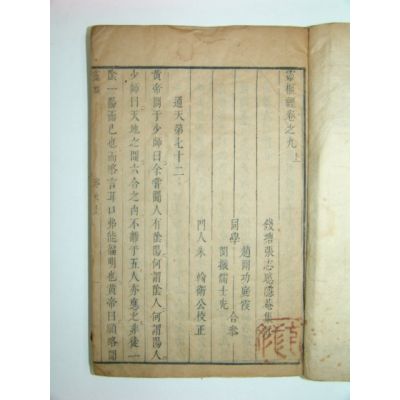 靈樞經卷之九上
錢塘張志聰隱菴集註
同學
趙爾功庭霞
閔振儒士先
合參
門人朱輪衛公校正
通天第七十二
黃帝問于少師曰余嘗聞人有陰陽何謂陰人何謂陽人
少師曰天地之間六合之內不離于五人亦應之非徒一
陰一陽而已也而略言耳口弗能徧明也黃帝曰願略聞